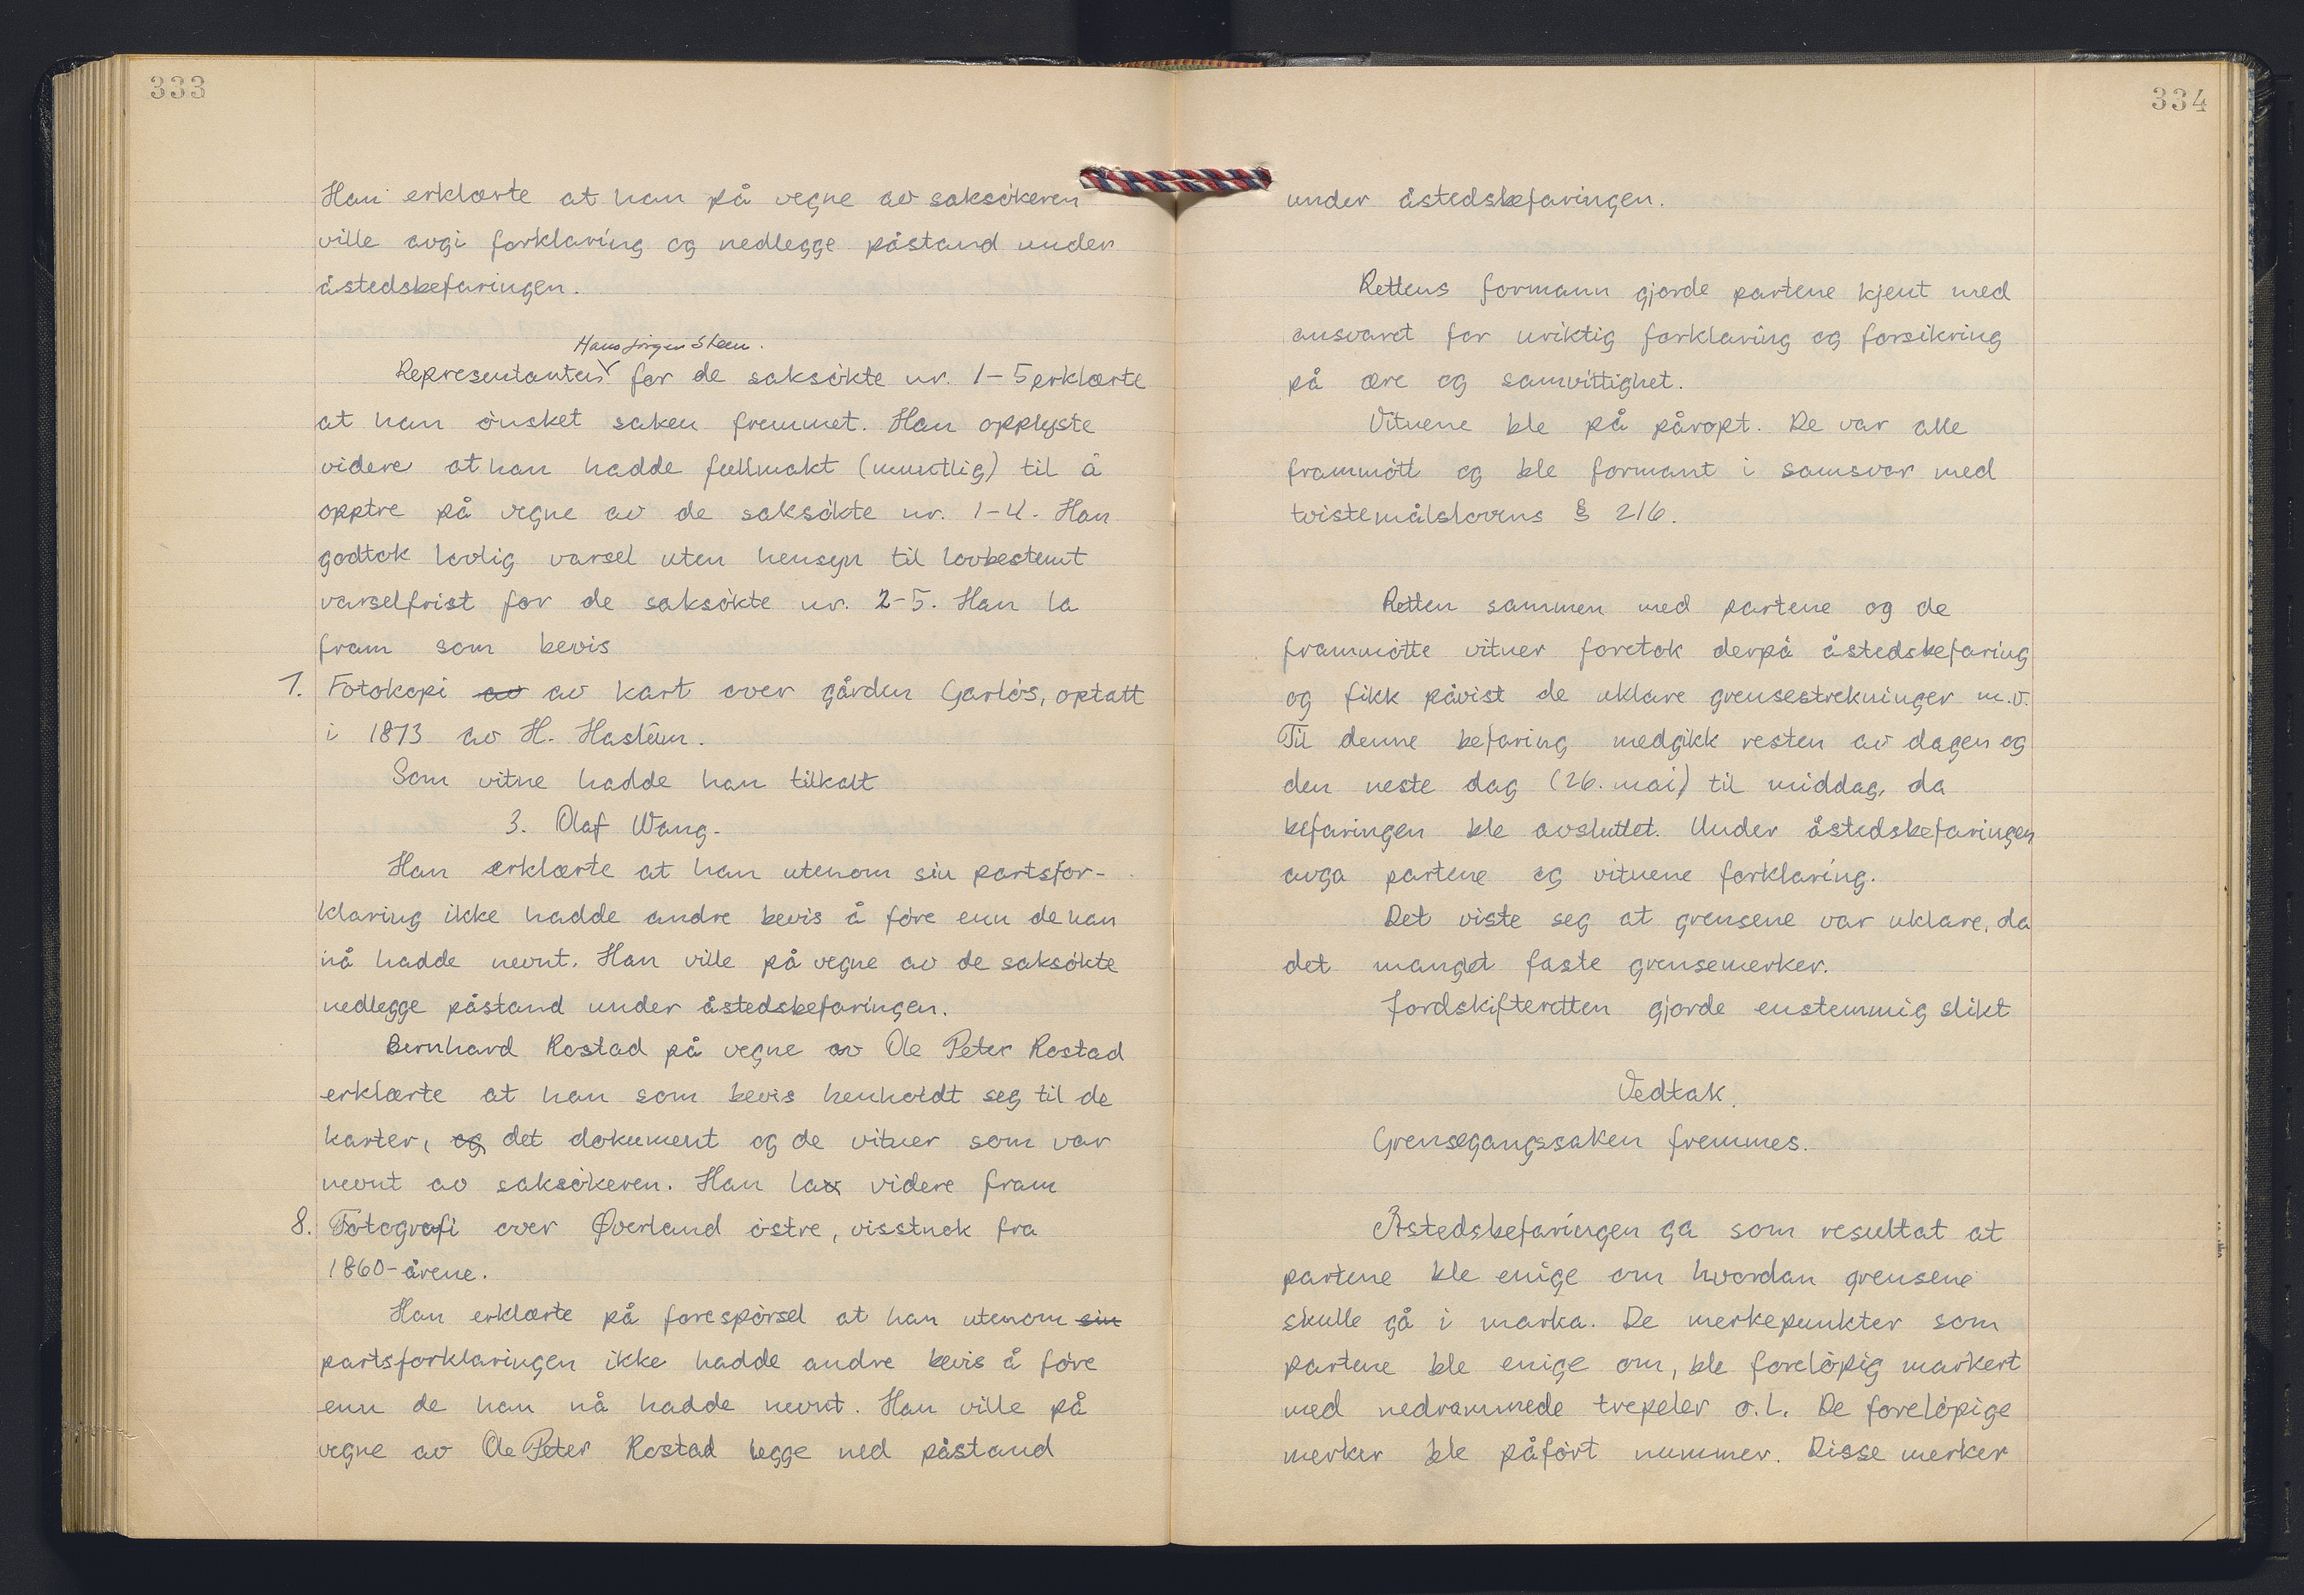 333
Han erklærte at han på vegne av saksökeren
ville avgi forklaring og nedlegge påstand under
åstedsbefaringen.
Hans Jörgen Steen.
Representanten for de saksökte nr. 1-5 erklærte
at han önsket saken fremmet. Han opplyste
videre at han hadde fullmakt (muntlig) til å
opptre på vegne av de saksökte nr. 1-4. Han
godtok lovlig varsel uten hensyn til lovbestemt
varselfrist for de saksökte nr. 2-5. Han la
fram som bevis
7. Fotokopi av av kart over gården Garlös, optatt
i 1873 av H.
Som vitne hadde han tilkalt
3. Olaf Wang.
Han erklærte at han utenom sin partsfor-
klaring ikke hadde andre bevis å före enn de han
nå hadde nevnt. Han ville på vegne av de saksökte
nedlegge påstand under åstedsbefaringen.
Bernhard Rostad på vegne av Ole Peter Rostad
erklærte at han som bevis henholdt seg til de
karter, og det dokument og de vitner som var
nevnt av saksökeren. Han la videre fram
8. Fotografi over Øverland östre, visstnok fra
1860-årene.
Han erklærte på forespörsel at han utenom sin
partsforklaringen ikke hadde andre bevis å före
enn de han nå hadde nevnt. Han ville på
vegne av Ole Peter Rostad legge ned påstand
334
under åstedsbefaringen.
Rettens formann gjorde partene kjent med
ansvaret for uriktig forklaring og forsikring
på ære og samvittighet.
Vitnene ble på påropt. De var alle
frammött og ble formant i samsvar med
tvistemålslovens § 216.
Retten sammen med partene og de
frammötte vitner foretok derpå åstedsbefaring
og fikk påvist de uklare grensestrekninger m.v.
Til denne befaring medgikk resten av dagen og
den neste dag (26. mai) til middag, da
befaringen ble avsluttet. Under åstedsbefaringen
avga partene og vitnene forklaring.
Det viste seg at grensene var uklare, da
det manglet faste grensemerker.
Jordskifteretten gjorde enstemmig slikt
Vedtak.
Grensegangssaken fremmes.
Åstedsbefaringen ga som resultat at
partene ble enige om hvordan grensene
skulle gå i marka. De merkepunkter som
partene ble enige om, ble forelöpig markert
med nedrammede trepeler o.l. De forelöpige
merker ble påfört nummer. Disse merker